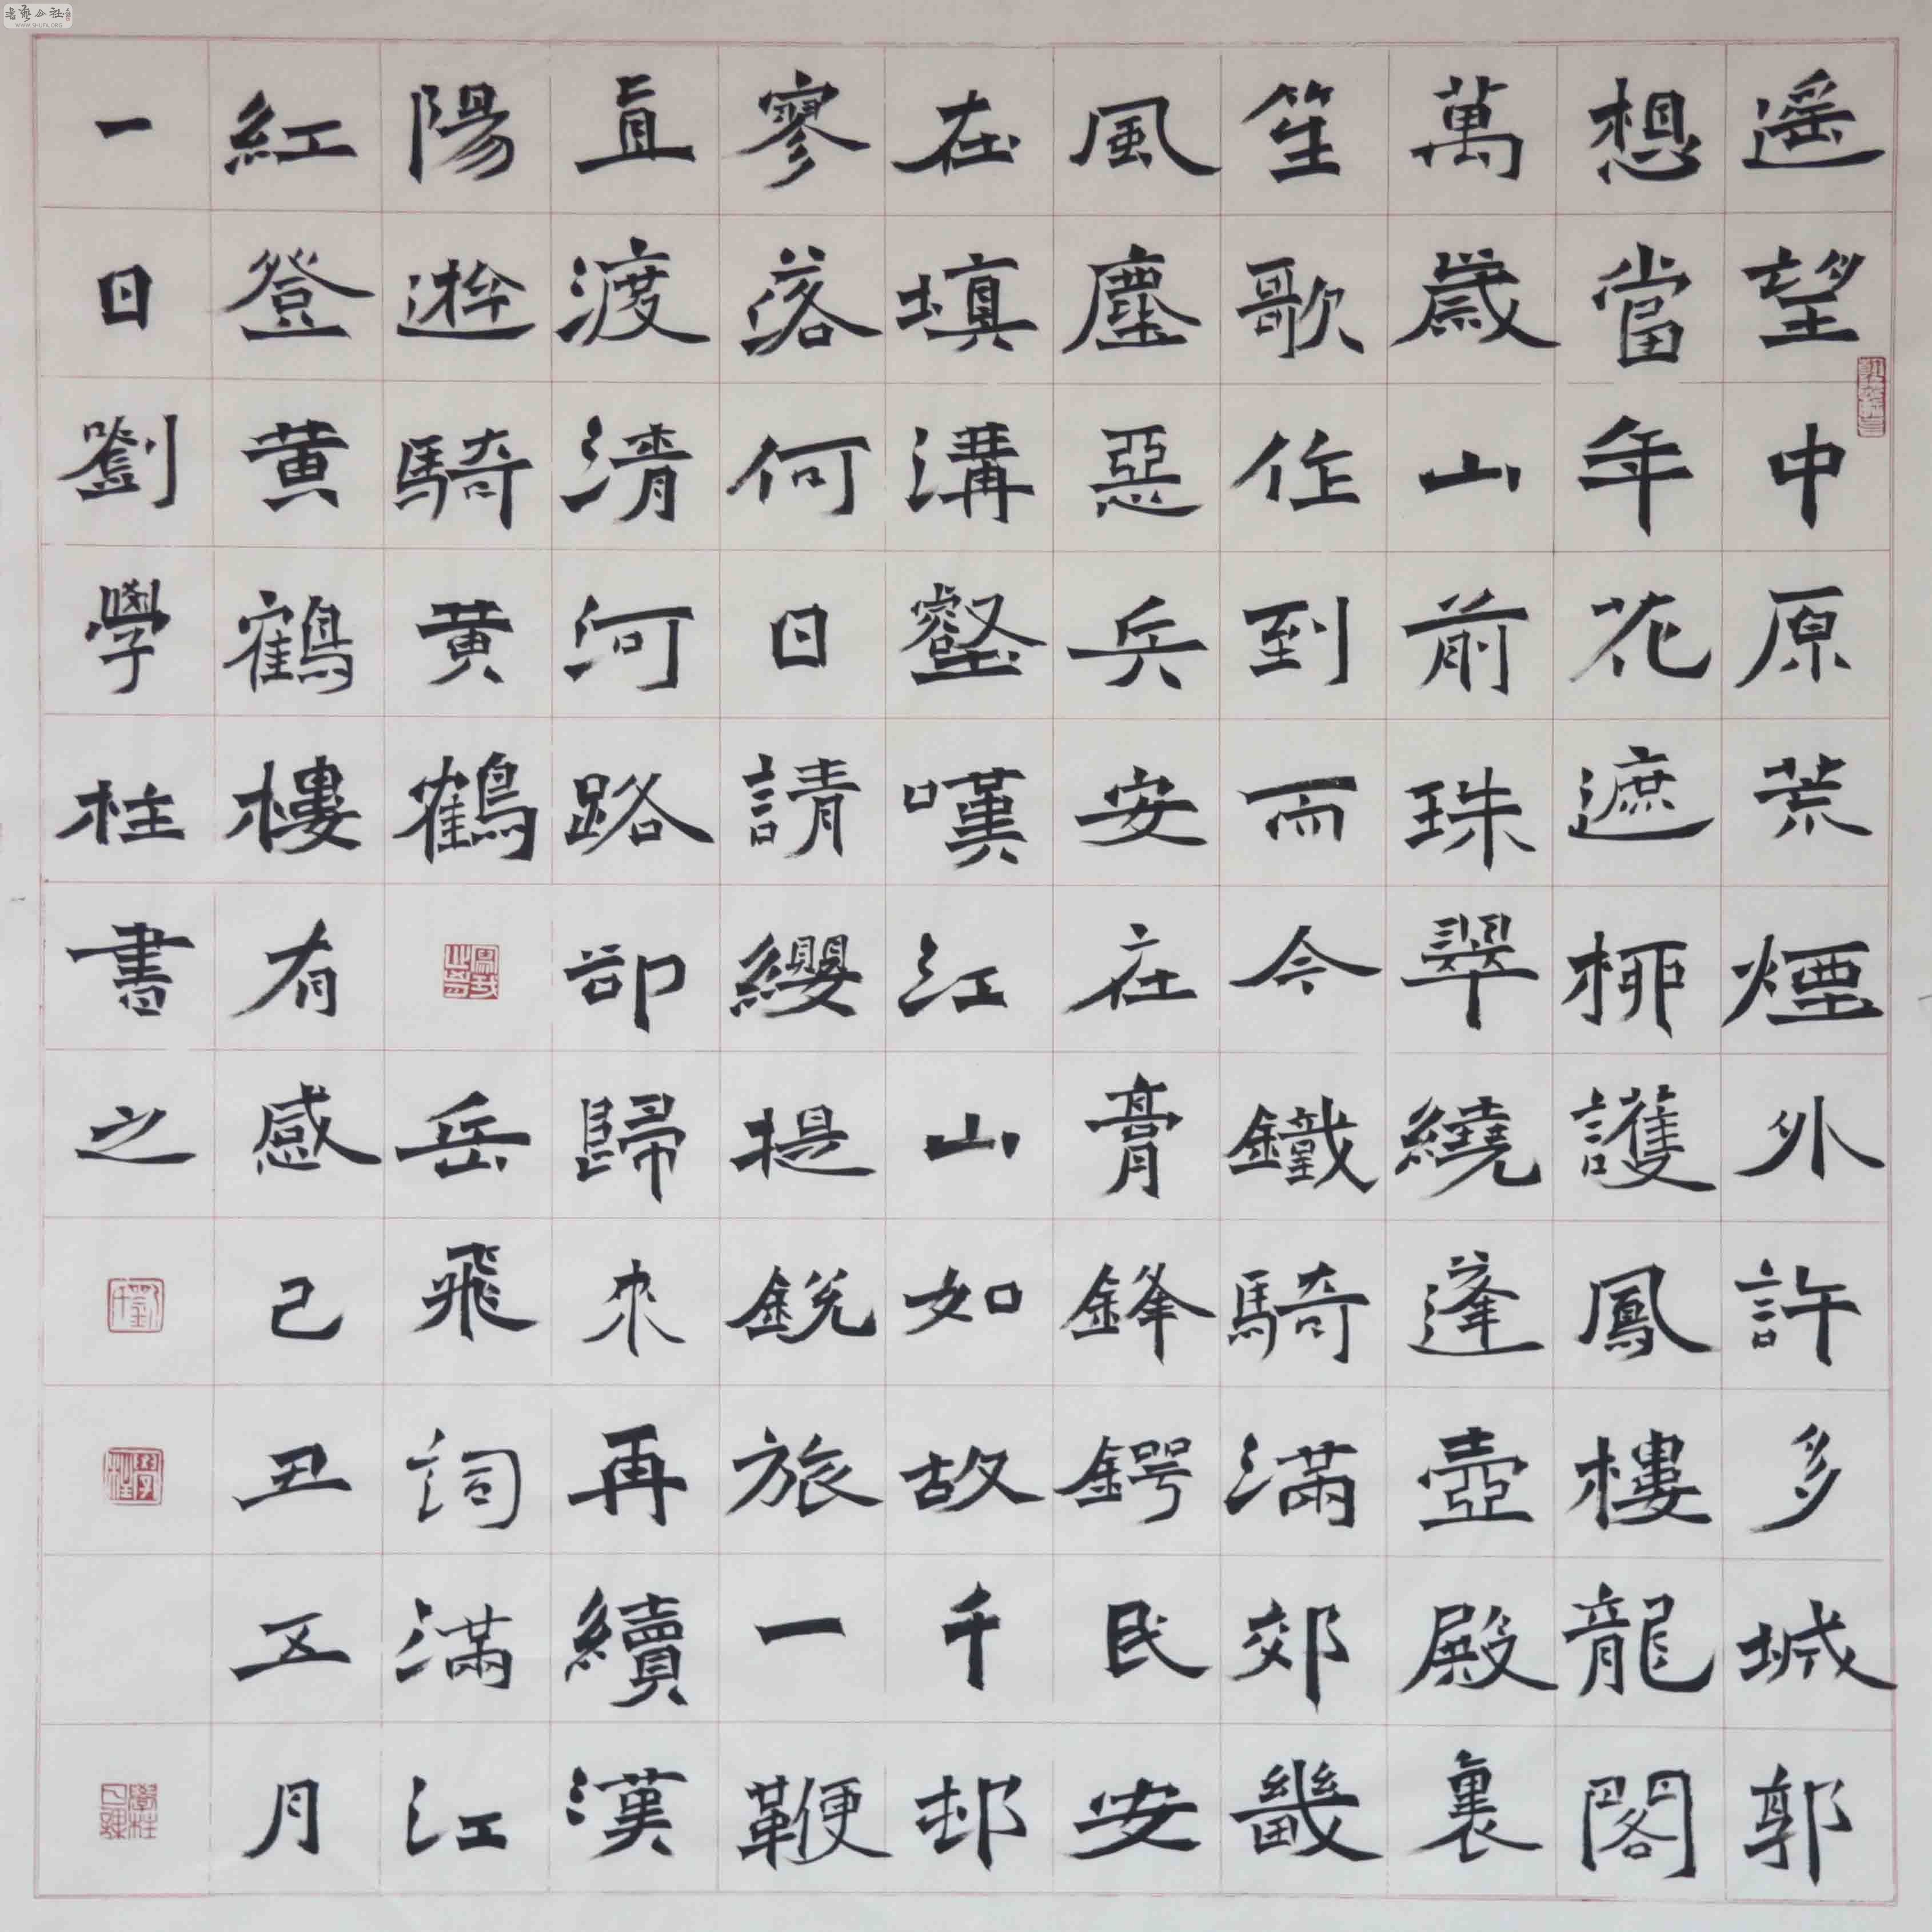 遥望中原荒煙外許多城郭
想當年花遮栁護鳳樓龍閣
萬歲山前珠翠繞蓬壺殿裏
笙歌作到而今鐵騎滿郊畿
風塵惡兵安在膏鋒鍔民安
在填溝壑嘆江山如故千邨
寥落何日請纓提銳旅一鞭
直渡清河路卻歸來再續漢
陽遊騎黃鶴
岳飛詞滿江
紅登黃鶴樓有感己丑五月
一日劉學柱書之
WWW.SHUFA.ORG